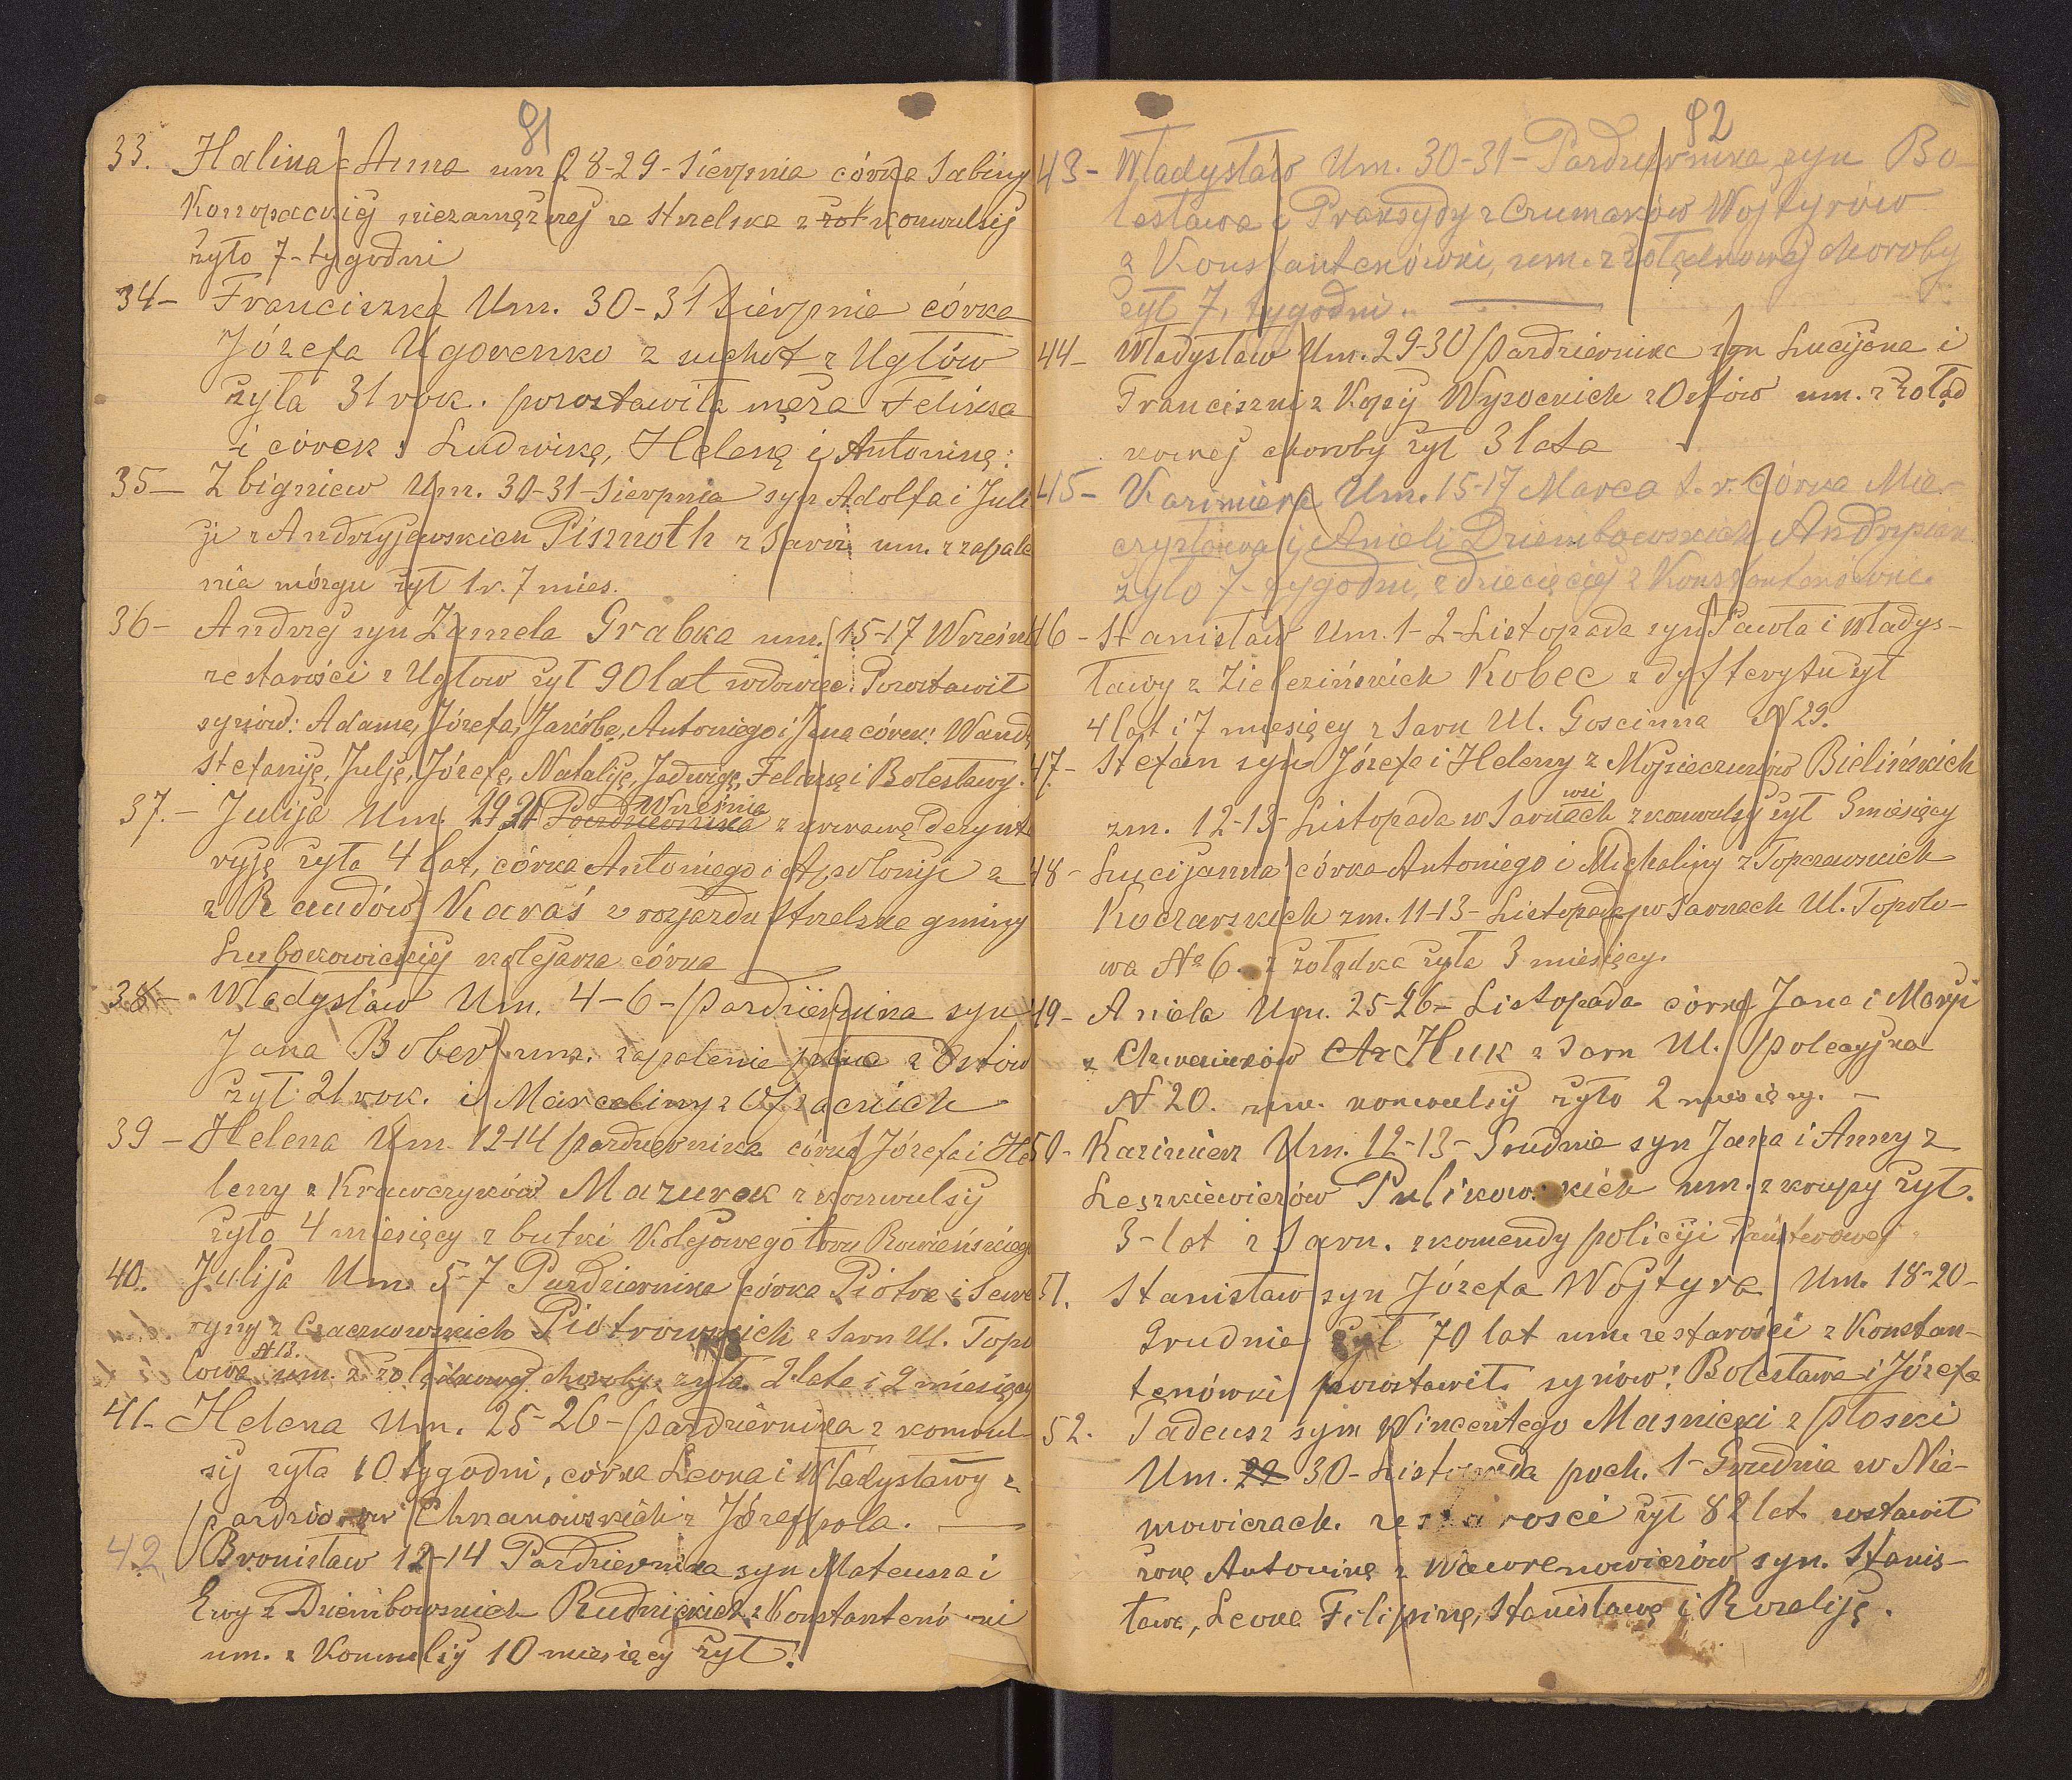 91
33. Halina-Anna um 28-29-Sierpnia córka Sabiny
Konopackiej niezamężnej ze Strzelska z konwulsij
żyło 7-tygodni
34- Franciszka Um. 30-31 Sierpnia córka
Józefa Ugorenko z suchot z Ugłów
żyła 31 rok. pozostawiła męża Feliksa
i córek: Ludwikę, Helenę i Antoninę:
35- Zbigniew Um. 30-31-Sierpnia syn Adolfa i Juli
ji z Andrzyjewskich Pisznoth z Sarn um. z zapale
nia mózgu żył 1 r. 7 mies.
36- Andrzej syn Grabka um. 15-17 Wrześni
ze starości z Ugłow żył 90 lat wdowiec. Pozostawił
synów: Adama, Józefa, Jakóba, Antoniego i Jana córek: Wandę
Stefaniję, Julję, Józefę, Nataliję, Jadwigę, Feliksę i Bolesławy.
37.- Julija Um. Września
Pazdziernika z krwawą Dezynte
ryję żyła 4 lat, córka Antoniego i Apoloniji z
z Raudów Karaś z rozjazdu Strzelska gminy
Lubokowickiej kolejarza córka
38- Władysław Um. 4-6-pazdziernika syn
Jana Bober um. zapalenie płuc z Osłów
żył 21 rok. i Marceliny z
39- Helena Um. 12-14 pazdziernika córka Józefa i He
leny z Krawczyków Mazurek z konwulsij
żyła 4 miesięcy z butki Kolejowego toru Rowieńskiego
40. Julija Um. 5-7 Pazdziernika córka Piotra i Sewe
ryny z Czaczkowskich Piotrowskich z Sarn Ul. Topo
lowa N 13. um. z żołądkowej choroby żyła 2 lata i 2 miesięcy
41- Helena Um. 25-26-pazdziernika z konwul-
sij żyła 10 tygodni, córka Leona i Władysławy z
Chrzanowskich z Józefpola.
42 Bronisław 12-14 Pazdziernika syn Mateusza i
Ewy z Dziembowskich Rudnickich z Konstantenówki
um. z Konwulsij 10 miesięcy żył.
92
43- Władysław Um. 30-31-Pazdziernika syn Bo-
lesława i Praksydy z Czumaków Wojtyrów
z Konstantenówki, um. z żołądkowej choroby
żył 7, tygodni.
44- Władysław Um. 29-30 pazdziernika syn Lucijana i
Franciszki z Kopij Wysockich z Osłów um. z żołąd
kowej choroby żył 3 lata
45- Kazimiera Um. 15-17 Marca t. r. córka Mie-
czysława i Anieli Dziembowskich Andrysiak
żyło 7-tygodni, z dziecięcej z Konstantenówki.
46- Stanisław Um. 1-2-Listopada syn Pawła i Włady-
ławy z Zielezińskich Kobec z dyfterytu żył
4 lat i 7 miesięcy z Sarn Ul. Goscinna N 29.
47- Stefan syn Józefa i Heleny z Mojsieczuków Bielińskich
zm. 12-13-Listopada w wsi Sarnach z konwulsij żył 3 miesięcy
48- Lucijanna córka Antoniego i Michaliny z Topczewskich
Koczarskich zm. 11-13-Listopada w Sarnach Ul. Topolo-
wa No 6. z żołądka żyła 3 miesięcy.
49- Aniela Um. 25-26-Listopada córka Jana i Maryi
z Huk z Sarn Ul. policyjna
N 20. um. konwulsij żyło 2 miesięcy.
50- Kazimierz Um. 12-13-Grudnia syn Jana i Anny z
Leszkiewiczów Pulikowskich um. z krupy żył.
3-lat z Sarn. z komendy policyji Państwowej
51. Stanisław syn Józefa Wojtyra Um. 18-20-
Grudnia żył 70 lat um. ze starości z Konstan-
tenówki pozostawił synów: Bolesława i Józefa
52. Tadeusz syn Wincentego Masnicki z płoski
Um. 30-Listopada poch. 1-Grudnia w Nie-
mowiczach. ze starości żył 82 lat zostawił
żonę Antoninę z Wawrenowiczów syn. Stanis-
ława, Leona Filipinę, Stanisławę i Rozaliję.